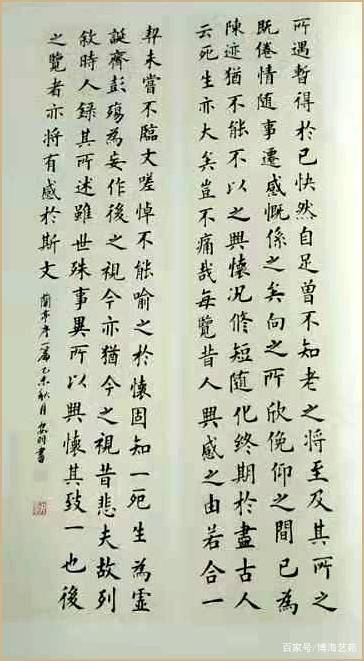 所遇暫得於己快然自足曾不知老之將至及其所之
既倦情隨事遷感慨係之矣向之所欣俛仰之間已為
陳迹猶不能不以之興懷況修短隨化終期於盡古人
云死生亦大矣豈不痛哉每覽昔人興感之由若合一
契未嘗不臨文嗟悼不能喻之於懷固知一死生為虛
誕齊彭殤為妄作後之視今亦猶今之視昔悲夫故列
敘時人錄其所述雖世殊事異所以興懷其致一也後
之覽者亦將有感於斯文
蘭亭序一篇乙未秋月書
百家号/博海艺苑